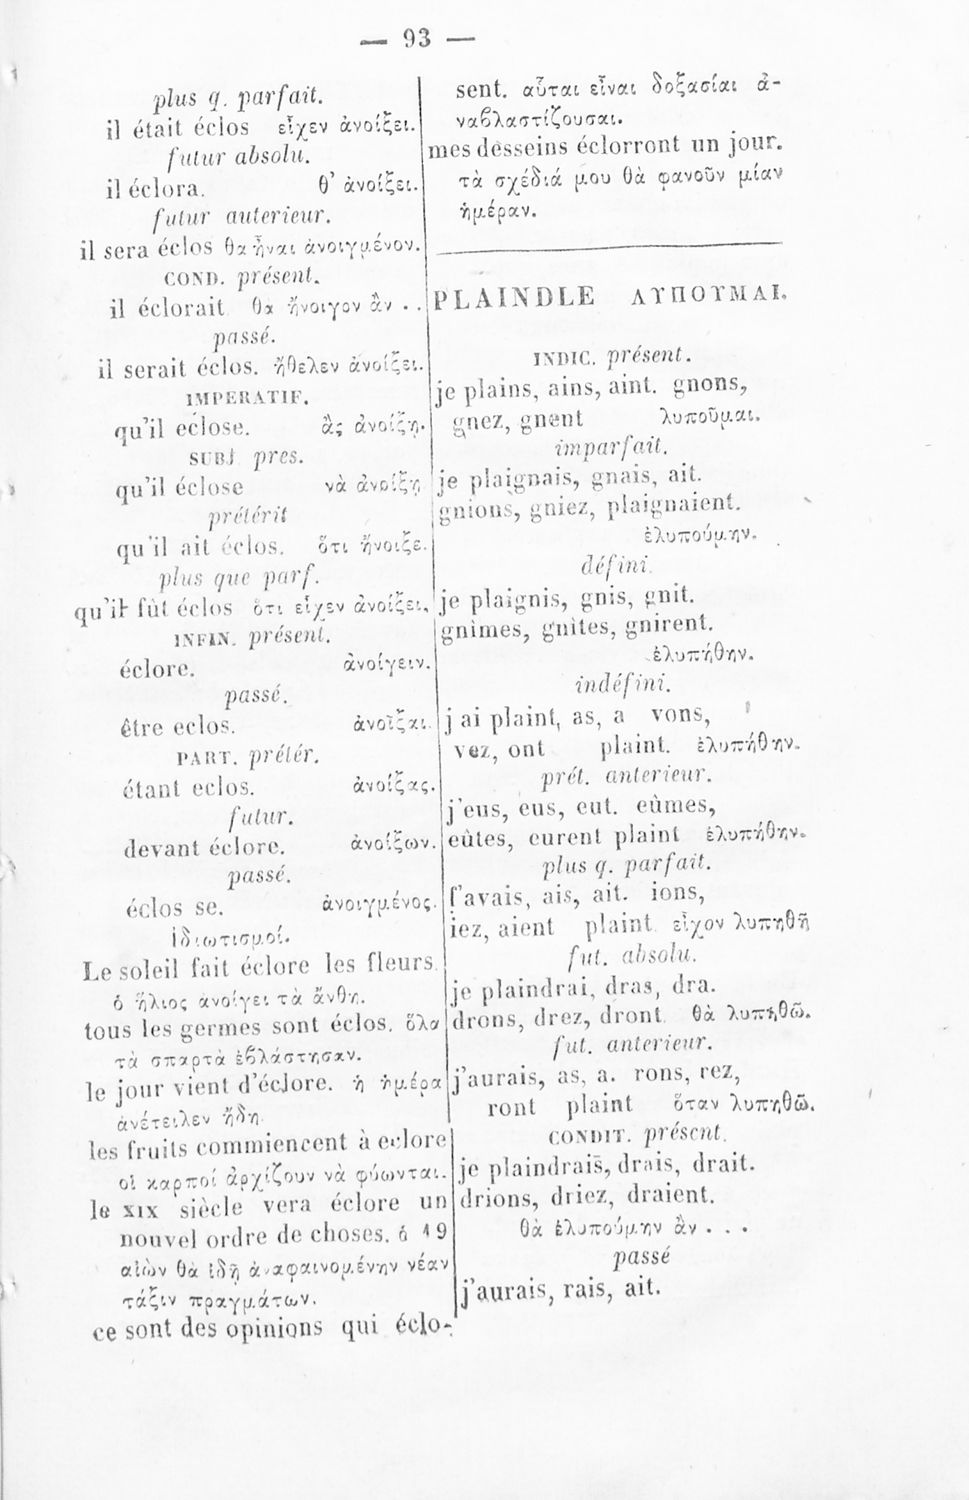 — 93 —
plus q. parfait.
il était éclos εἶχεν ἀνοίξει.
futur absolu.
il éclora. θ' ἀνοίξει.
futur anterieur.
il sera éclos θα ἦναι ἀνοιγμένον.
COND. présent.
il éclorait θα ἤνοιγον ἂν . .
passé.
il serait éclos. ἤθελεν ἀνοίξει.
IMPERATIF.
qu'il eclose. ἂς ἀνοίξῃ.
SUBJ pres.
qu'il éclose νὰ ἀνοίξῃ
prétérit
qu'il ait éclos. ὅτι ἤνοιξε.
plus que parf.
qu'il fût éclos ὅτι εἶχεν ἀνοίξει.
INFIN. présent.
éclore. ἀνοίγειν.
passé.
être eclos. ἀνοῖξαι.
PART. prétér.
étant eclos. ἀνοίξας.
futur.
devant éclore. ἀνοίξων.
passé.
éclos se. ἀνοιγμένος.
ἰδιωτισμοί.
Le soleil fait éclore les fleurs.
ὁ ἥλιος ἀνοίγει τὰ ἄνθη.
tous les germes sont éclos. ὅλα
τὰ σπαρτὰ ἐβλάστησαν.
le jour vient d'éclore. ἡ ἡμέρα
ἀνέτειλεν ἤδη
les fruits commiencent à eclore
οἱ καρποί ἀρχίζουν νὰ φύωνται.
le XIX siècle vera éclore un
nouvel ordre de choses. ὁ 19
αἰὼν θὰ ἰδῇ ἀναφαινομένην νέαν
τάξιν πραγμάτων.
ce sont des opinions qui éclo-
sent. αὗται εἶναι δοξασίαι ἀ-
ναβλαστίζουσαι.
mes desseins éclorront un jour.
τὰ σχέδιά μου θὰ φανοῦν μίαν
ἡμέραν.
PLAINDLE ΛΥΠΟΥΜΑΙ.
INDIC. présent.
je plains, ains, aint. gnons,
gnez, gnent λυποῦμαι.
imparfait.
je plaignais, gnais, ait.
gnions, gniez, plaignaient.
ἐλυπούμην.
défini.
je plaignis, gnis, gnit.
gnimes, gnites, gnirent.
ἐλυπήθην.
indéfini.
j ai plaint, as, a vons,
vez, ont plaint. ἐλυπήθην.
prét. anterieur.
j'eus, eus, eut. eûmes,
eûtes, eurent plaint ἐλυπήθην.
plus q. parfait.
l'avais, ais, ait. ions,
iez, aient plaint. εἶχον λυπηθῆ
fut. absolu.
je plaindrai, dras, dra.
drons, drez, dront θὰ λυπηθῶ.
fut. anterieur.
j'aurais, as, a. rons, rez,
ront plaint ὅταν λυπηθῶ.
CONDIT. présent.
je plaindrais, drais, drait.
drions, driez, draient.
θὰ ἐλυπούμην ἂν . . .
passé
j'aurais, rais, ait.